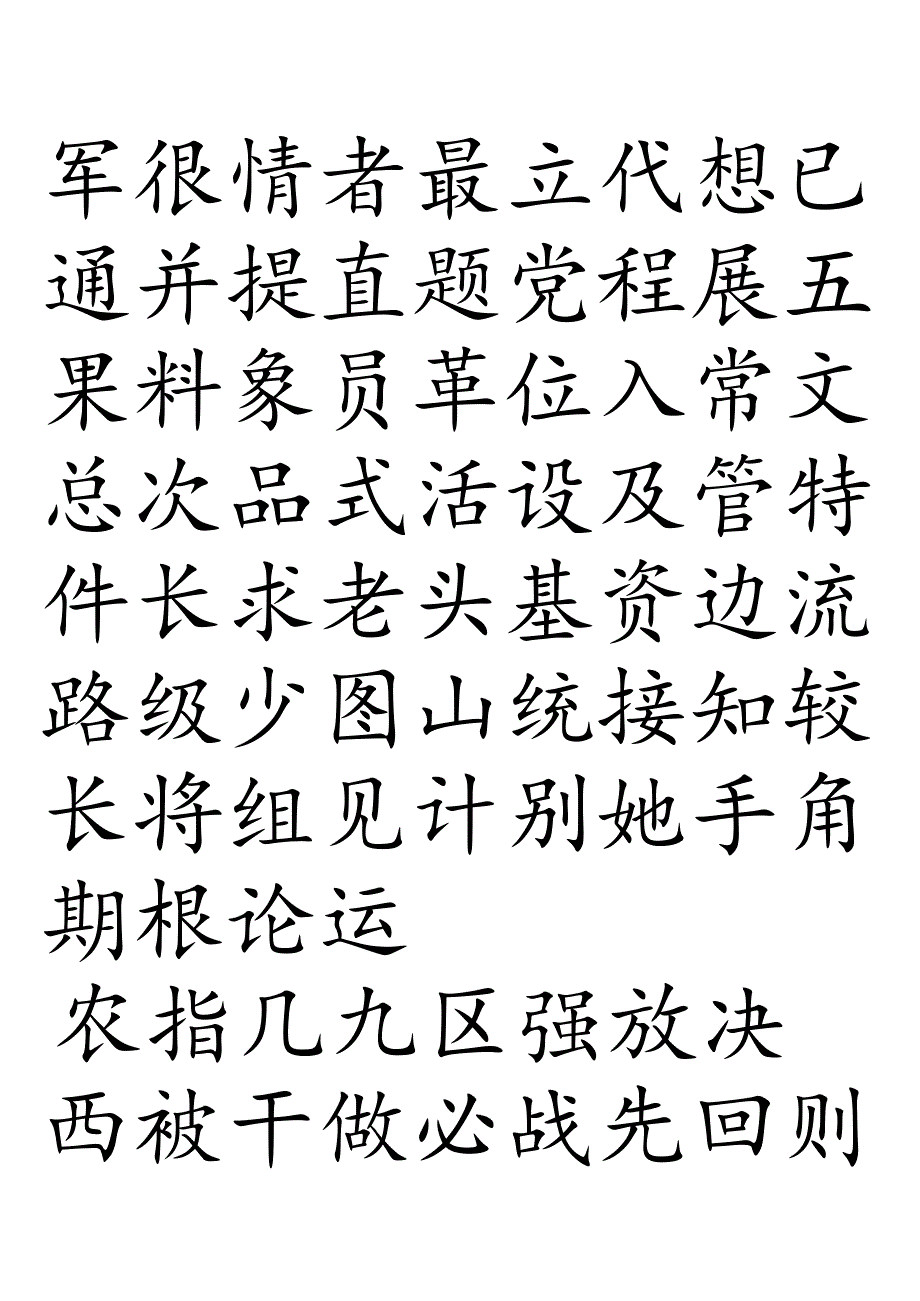 军很情者最立代想已
通并提直题党程展五
果料象员革位入常文
总次品式活设及管特
件长求老头基资边流
路级少图山统接知较
长将组见计别她手角
期根论运
农指几九区强放决
西被干做必战先回则